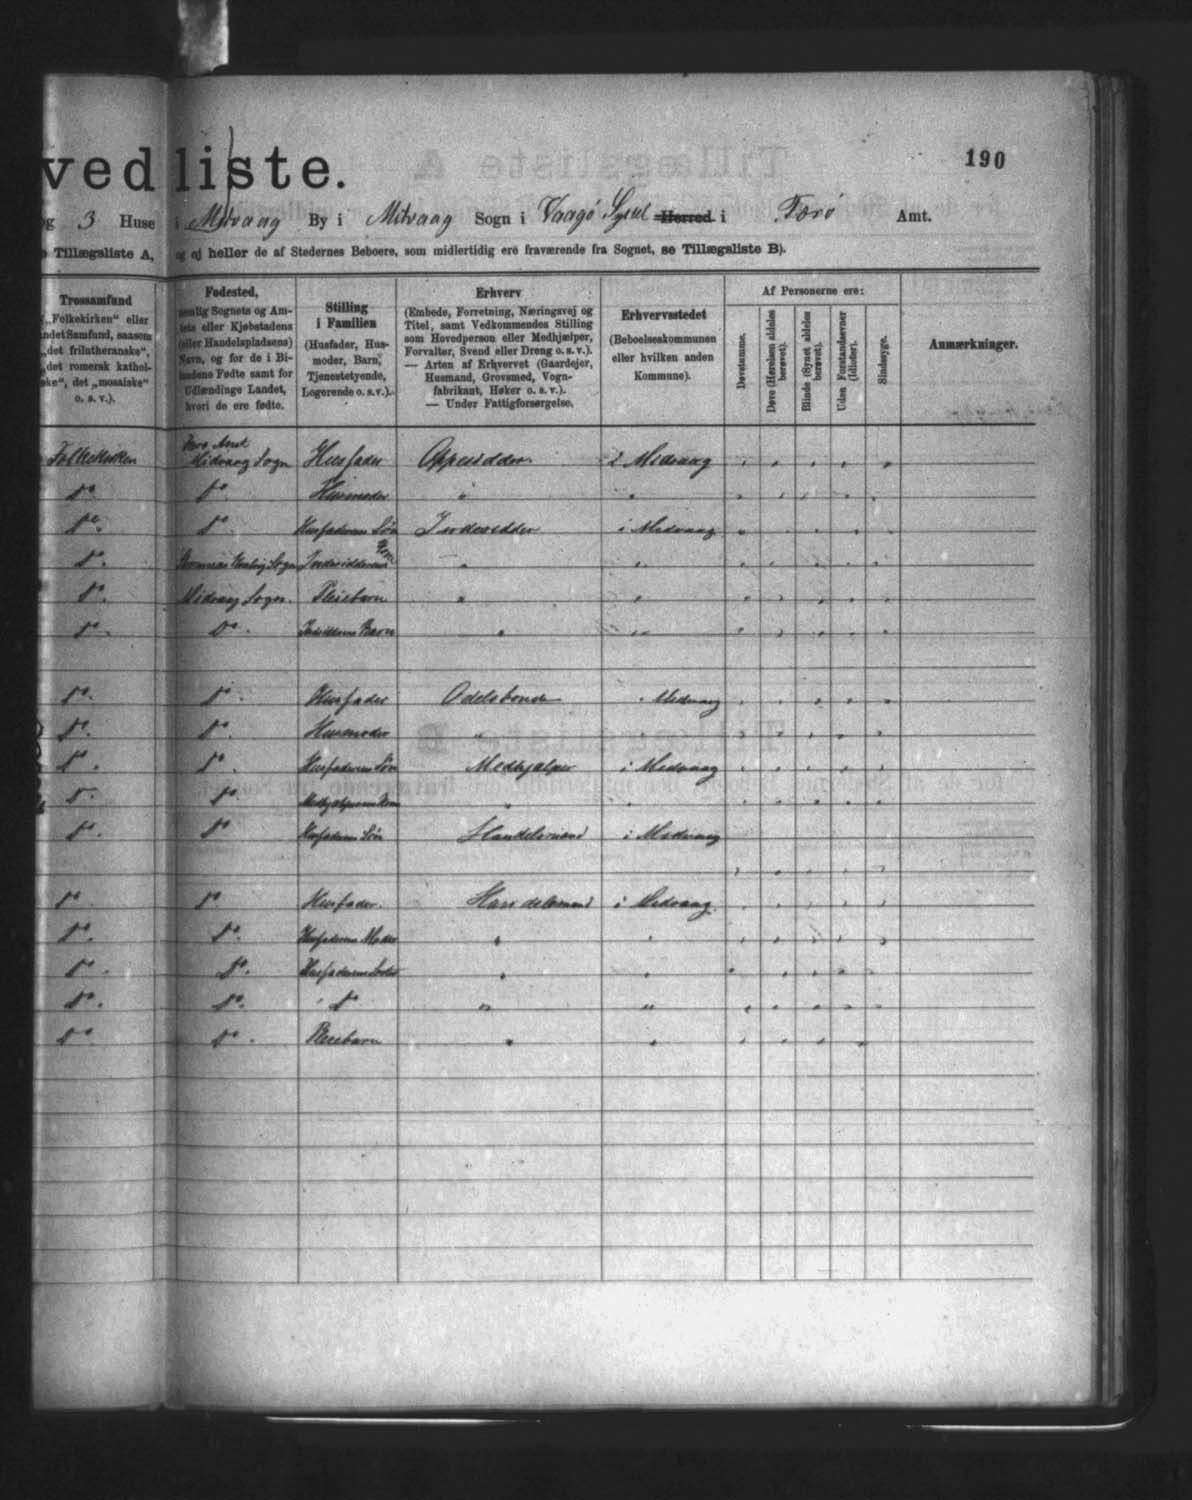 vedliste.
190
og 3 Huse i Midvaag By i Midvaag Sogn i Vaagø Syssel Herred i Færø Amt.
Tillægsliste A, og ej heller de af Stedernes Beboere, som midlertidig ere fraværende fra Sognet, se Tillægsliste B).
Trossamfund
„Folkekirken“ eller
andet Samfund, saasom
„det frilutheranske“,
„det romersk kathol-
ske“, det „mosaiske“
o. s. v.).
Fødested,
nemlig Sognets og Am-
tets eller Kjøbstadens
(eller Handelspladsens)
Navn, og for de i Bi-
landene Fødte samt for
Udlændinge Landet,
hvori de ere fødte.
Stilling
i Familien
(Husfader, Hus-
moder, Barn,
Tjenestetyende,
Logerende o. s. v.).
Erhverv
(Embede, Forretning, Næringsvej og
Titel, samt Vedkommendes Stilling
som Hovedperson eller Medhjælper,
Forvalter, Svend eller Dreng o. s. v.).
— Arten af Erhvervet (Gaardejer,
Husmand, Grovsmed, Vogn-
fabrikant, Høker o. s. v.).
— Under Fattigforsørgelse.
Erhvervsstedet
(Beboelseskommunen
eller hvilken anden
Kommune).
Af Personerne ere:
Døvstumme.
Døve (Hørelsen aldeles
berøvet).
Blinde (Synet aldeles
berøvet).
Uden Forstandsevner
(Idioter).
Sindssyge.
Anmærkninger.
Færø Amt
Folkekirken Midvaag Sogn Husfader Oppesidder i Midvaag
do. do. Husmoder "
do. do. Husfaderens Søn Indesidder i Midvaag
do. Sogn Indesidderens Kone "
do. Midvaag Sogn. Pleiebarn "
do. do. Barn "
do. do. Husfader Odelsbonde i Midvaag
do. do. Husmoder "
do. do. Husfaderens Søn Medhjælper i Midvaag
do. do. Medhjælperens Kone "
do. do. Husfaderens Søn Handelsmand i Midvaag
do. do. Husfader. Handelsmand i Midvaag.
do. do. Husfaderens Moder "
do. do. Husfaderens "
do. do. do "
do. do. Pleiebarn "